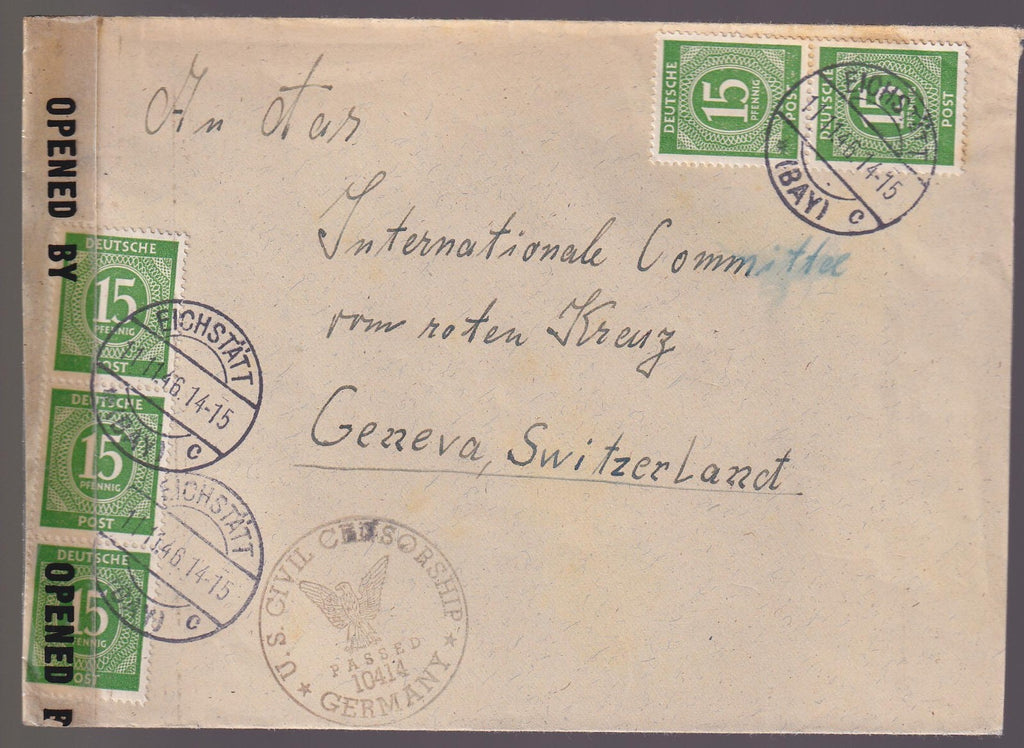 An das
Internationale Committee
vom roten Kreuz
Geneva, Switzerland
DEUTSCHE
15
PFENNIG
POST
DEUTSCHE
15
POST
EICHSTÄTT
11.46.14-15
(BAY) c
OPENED BY
DEUTSCHE
15
PFENNIG
POST
EICHSTÄTT
11.46.14-15
(BAY) c
DEUTSCHE
15
PFENNIG
POST
EICHSTÄTT
11.46.14-15
(BAY) c
DEUTSCHE
15
PFENNIG
POST
OPENED
U.S. CIVIL CENSORSHIP
PASSED
10414
GERMANY